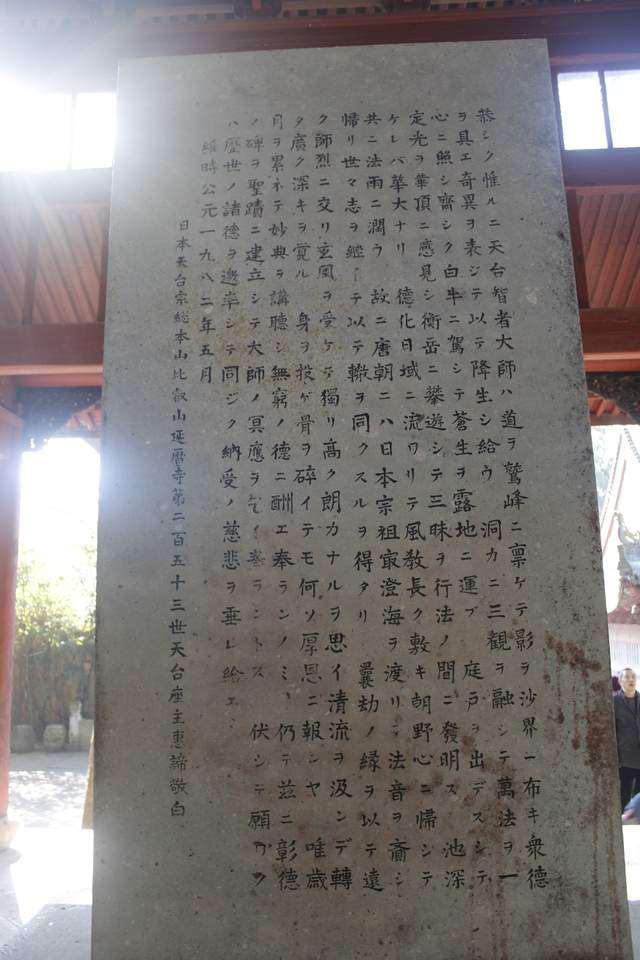 恭シク惟ルニ天台智者大師ハ道ヲ鷲峰ニ禀ケテ影ヲ沙界ー布キ衆德
ヲ具エ奇異ヲ表シテ以テ降生シ給ウ 洞カニ三觀ヲ融シテ萬法ヲ一
心ニ照シ齊シク白牛ニ駕シテ蒼生ヲ露地ニ運ブ 庭戸ヲ出デスシテ
定光ヲ華頂ニ感見シ衡岳ニ攀遊シテ三昧ヲ行法ノ間ニ發明ス 池深
ケレバ華大ナリ 德化日域ニ流ワリテ風教長ク敷キ朝野心ニ帰シテ
共ニ法雨ニ潤ウ 故ニ唐朝ニハ日本宗祖最澄海ヲ渡リテ法音ヲ齎シ
帰リ世々志ヲ継ーテ以テ轍ヲ同クスルヲ得タリ 曩劫ノ縁ヲ以テ遠
ク師烈ニ交リ玄風ヲ受ケテ獨リ高ク朗カナルヲ思イ清流ヲ汲ンデ轉
タ廣ク深キヲ覚ル 身ヲ投ゲ骨ヲ碎イテモ何ソ厚恩ニ報シヤ 唯歳
月ヲ累ネテ妙典ヲ講聴シ無窮ノ德ニ酬エ奉ランノミ 仍テ茲ニ彰德
ノ碑ヲ聖蹟ニ建立シテ大師ノ冥應ヲ ランドス 伏シテ願クワ
ハ歴世ノ諸德ヲ邀 シテ同ジク納受ノ慈悲ヲ垂レ給エ
維時公元一九八二年五月
日本天台宗総本山比叡山延暦寺第二百五十三世天台座主惠諦敬白